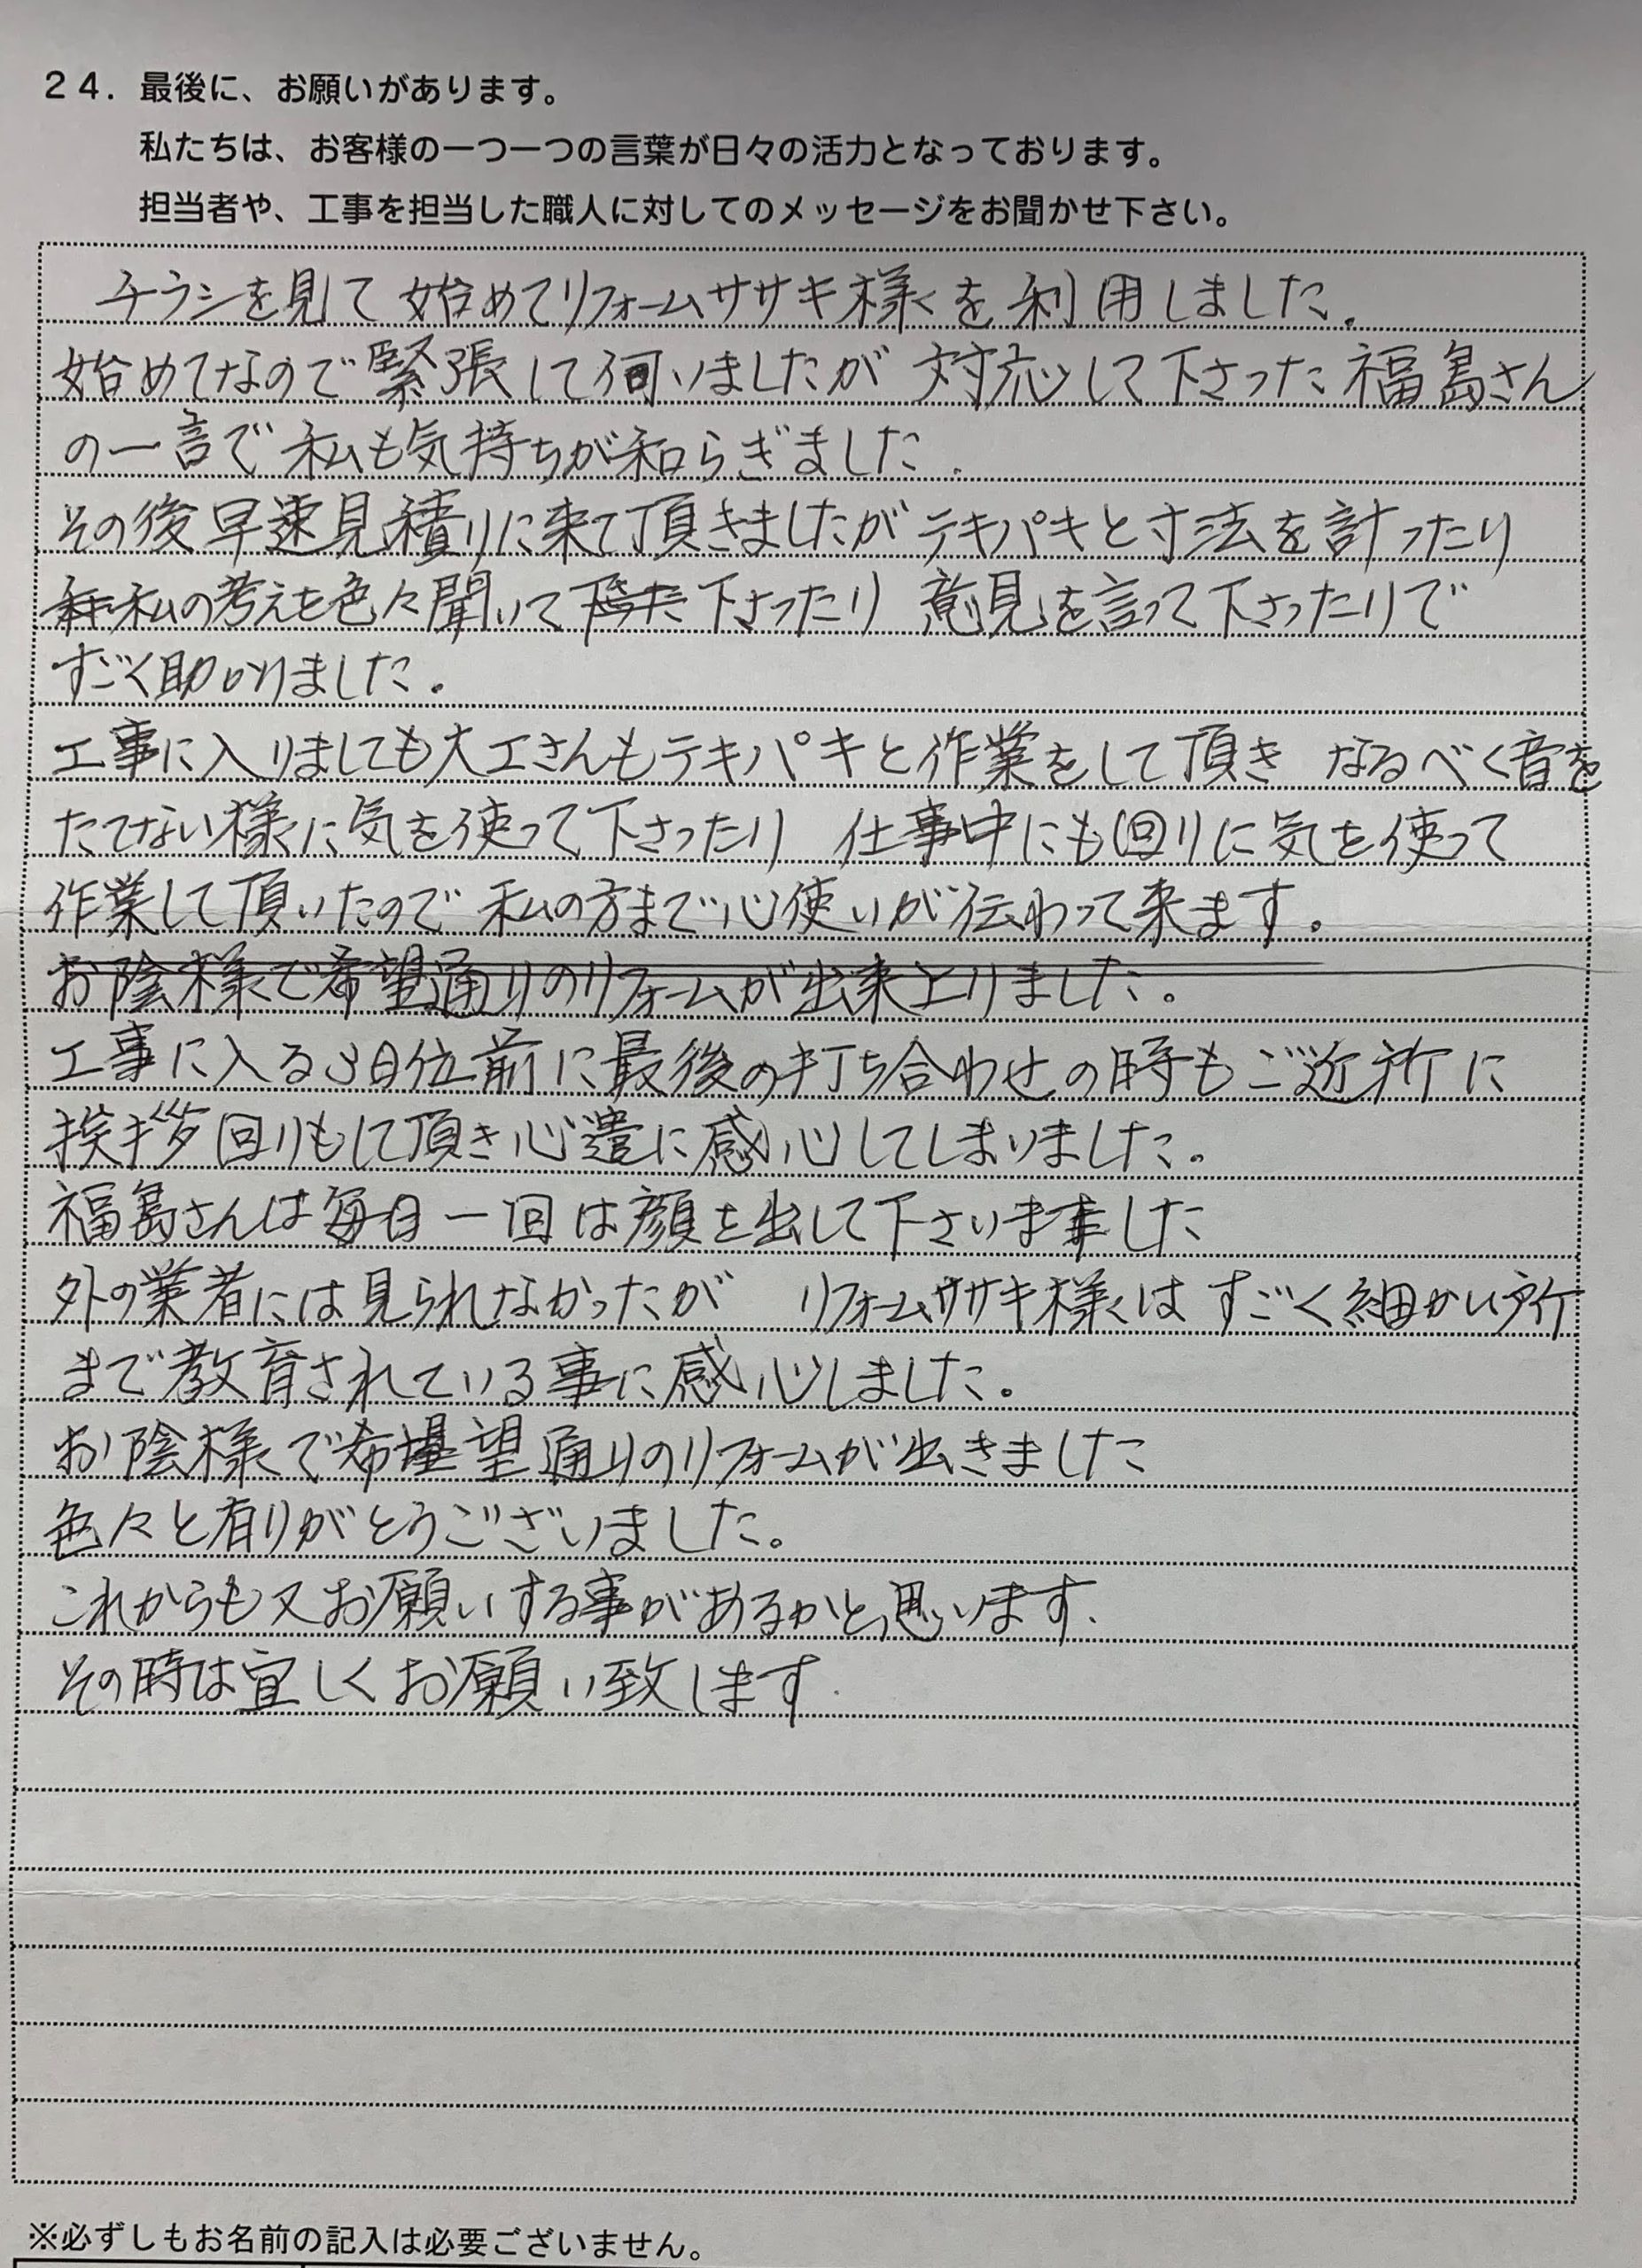 24. 最後に、お願いがあります。
私たちは、お客様の一つ一つの言葉が日々の活力となっております。
担当者や、工事を担当した職人に対してのメッセージをお聞かせ下さい。
チラシを見て始めてリフォームササキ様を利用しました.
始めてなので緊張して伺いましたが対応して下さった福島さん
の一言で私も気持ちが和らぎました.
その後早速見積りに来て頂きましたがテキパキと寸法を計ったり
私の考えを色々聞いて下さったり意見を言って下さったりで
すごく助かりました.
工事に入りましても大工さんもテキパキと作業をして頂き なるべく音を
たてない様に気を使って下さったり 仕事中にも回りに気を使って
作業して頂いたので私の方まで心使いが伝わって来ます。
お陰様で希望通りのリフォームが出来上りました。
工事に入る3日位前に最後の打ち合わせの時もご近所に
挨拶回りもして頂き心遣に感心してしまいました。
福島さんは毎日一回は顔を出して下さいました
外の業者には見られなかったが リフォームササキ様はすごく細かい所
まで教育されている事に感心しました。
お陰様で希望通りのリフォームが出きました
色々と有りがとうございました。
これからも又お願いする事があるかと思います.
その時は宜しくお願い致します.
※必ずしもお名前の記入は必要ございません。